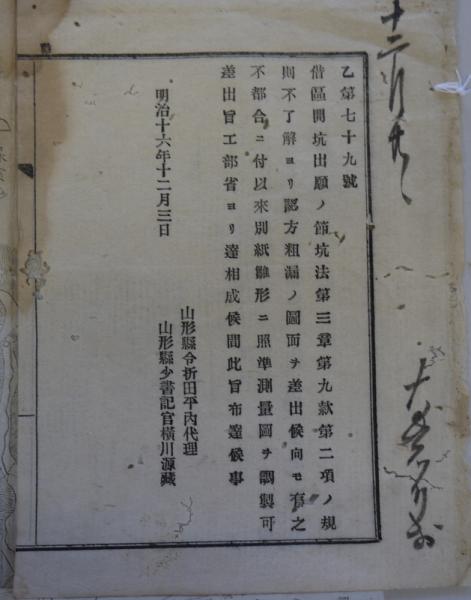 乙第七十九號
借區開坑出願ノ節坑法第三章第九款第二項ノ規
則不了解ヨリ認方粗漏ノ圖面ヲ差出候向モ有之
不都合ニ付以來別紙雛形ニ照準測量圖ヲ調製可
差出旨工部省ヨリ達相成候間此旨布達候事
明治十六年十二月三日
山形縣令折田平內代理
山形縣少書記官橫川源藏